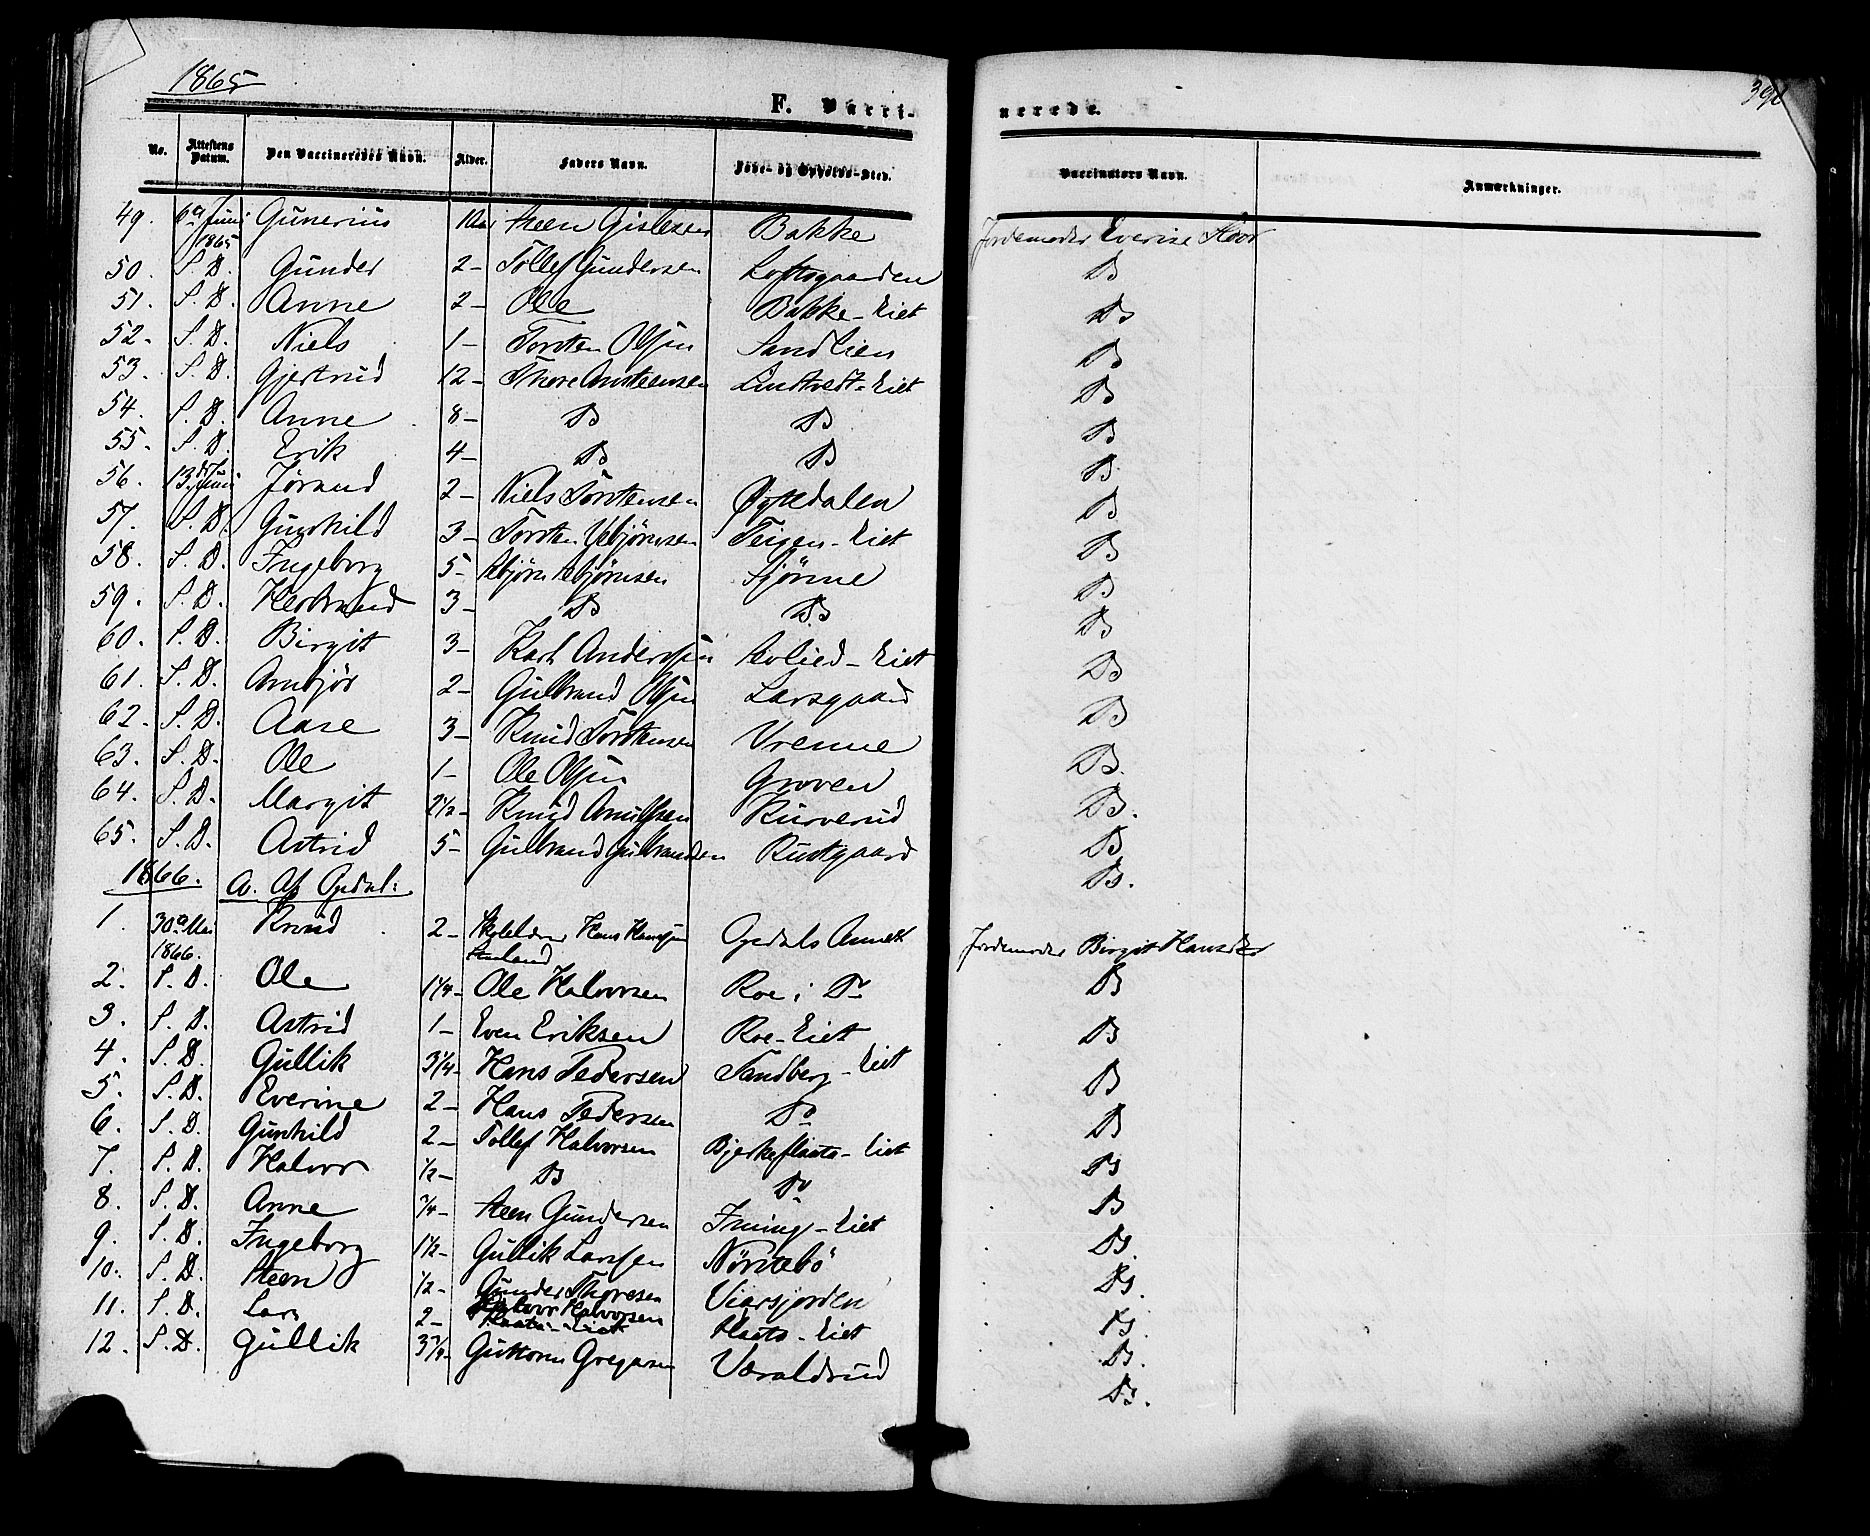 1865
390
F. Vacci-
nerede.
No. Attestens Datum. Den Vaccineredes Navn. Alder. Faders Navn. Føde- og Opholds-Sted. Vaccinators Navn. Anmærkninger.
49. 6te Juni 1865 Gunerius 1 Aar Steen Gislesen Bakke Jordemoder Everine Hoor
50. S. D. Gunder 2 - Tollef Gundersen Loftsgaarden Do
51. S. D. Anne 2 - Ole Bakke-Eiet Do
52. S. D. Niels 1 - Torsten Olsen Sandlien Do
53. S. D. Gjertrud 12 - Thore Amsteensen Lindtvedt-Eiet Do
54. S. D. Anne 8 - Do Do Do
55. S. D. Erik 4 - Do Do Do
56. 13de Juni Jørand 2 - Niels Torstensen Øygedalen Do
57. S. D. Gunhild 3 - Torsten Asbjørnsen Teigen-Eiet Do
58. S. D. Ingeborg 5 - Asbjørn Asbjørnsen Sjønne Do
59. S. D. Hertrand 3 - Do Do Do
60. S. D. Birgit 3 - Karl Andersen Aslied-Eiet Do
61. S. D. Ambjør 2 - Gulbrand Olsen Larsgaard Do
62. S. D. Aase 3 - Knud Torstensen Vrenne Do
63. S. D. Ole 1 - Ole Olsen Groven Do.
64. S. D. Margit 2 1/2 - Knud Knudsen Kurverud Do.
65. S. D. Astrid 5 - Gulbrand Gulbrandsen Rustgaard Do
1866. A. Af Opdal: Do.
1. 30te Mai 1866. Knud 2 - Hans Hansen Opdals Annex Jordemoder Birgit Hansdtr
2. S. D. Ole 1 1/4 - Ole Halvorsen Roe i Do Do
3. S. D. Astrid 1 - Even Eriksen Roe-Eiet Do
4. S. D. Gullik 3 1/4 - Hans Pedersen Sandberg-Eiet Do
5. S. D. Everine 2 - Hans Pedersen Do Do
6. S. D. Gunhild 2 - Tollef Halvorsen Bjerkeflaata-Eiet Do
7. S. D. Halvor 1/2 - Do Do Do
8. S. D. Anne 3/4 - Steen Gundersen Imingi-Eiet Do.
9. S. D. Ingeborg 1 1/2 - Gullik Larsen Nørstebö Do.
10. S. D. Steen 1/2 - Gunder Thoresen Viersjorden Do.
11. S. D. Lars 2 - Halvor Halvorsen Flaata-Eiet Flaata-Eiet Do.
12. S. D. Gullik 3 3/4 - Guttorm Gregarsen Væraldrud Do.